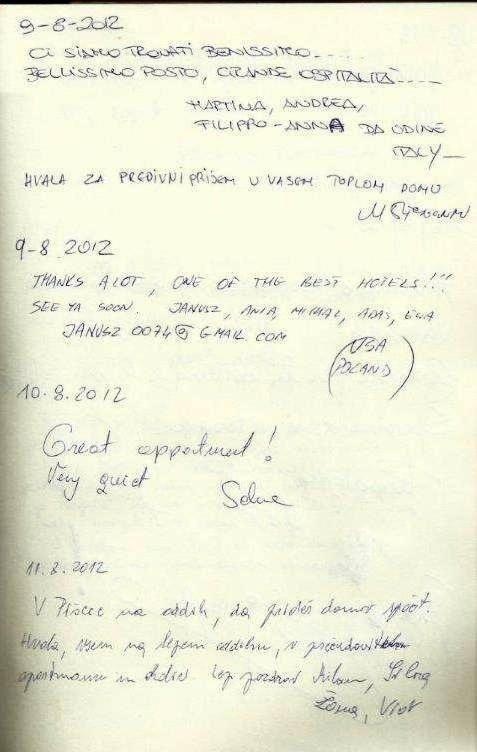 9-8-2012
CI SIAMO TROVATI BENISSIMO.....
BELLISSIMO POSTO, GRANDE OSPITALITÀ....
MARTINA, ANDREA,
FILIPPO-ANNA DA UDINE
ITALY_
HVALA ZA PREDIVNI PRIJEM U VAŠEM TOPLOM DOMU
9-8.2012
THANKS A LOT, ONE OF THE BEST HOTELS!!!
SEE YA SOON. JANUSZ, ANIA, MICHAL, ADAŚ, EWA
JANUSZ0074@GMAIL.COM
(USA
POLAND)
10.8.2012
Great appartment!
Very quiet
11.8.2012
V Pišece na oddih, da prideš domov spočit.
Hvala, vsem na lepem oddihu, v
apartmanu in Lep pozdrav Milan, Silva
Vlov